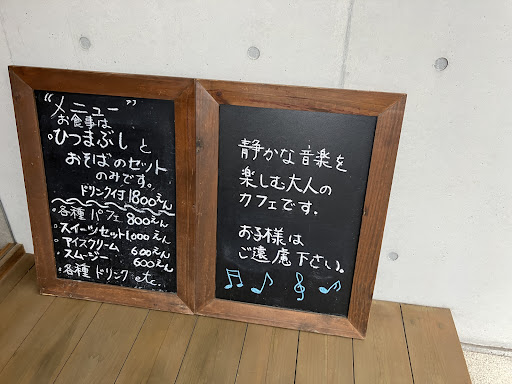 “メニュー”
お食事は
。ひつまぶしと
おそばのセット
のみです。
ドリンク付 1800えん
・各種 パフェ 800えん
・スイーツセット 1,000えん
・アイスクリーム 600えん
・スムージー 600えん
・各種 ドリンク etc.
静かな音楽を
楽しむ大人の
カフェです.
お子様は
ご遠慮下さい。